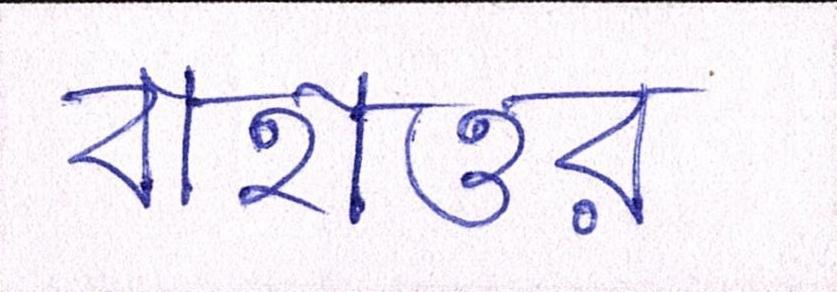 বাহাত্তর